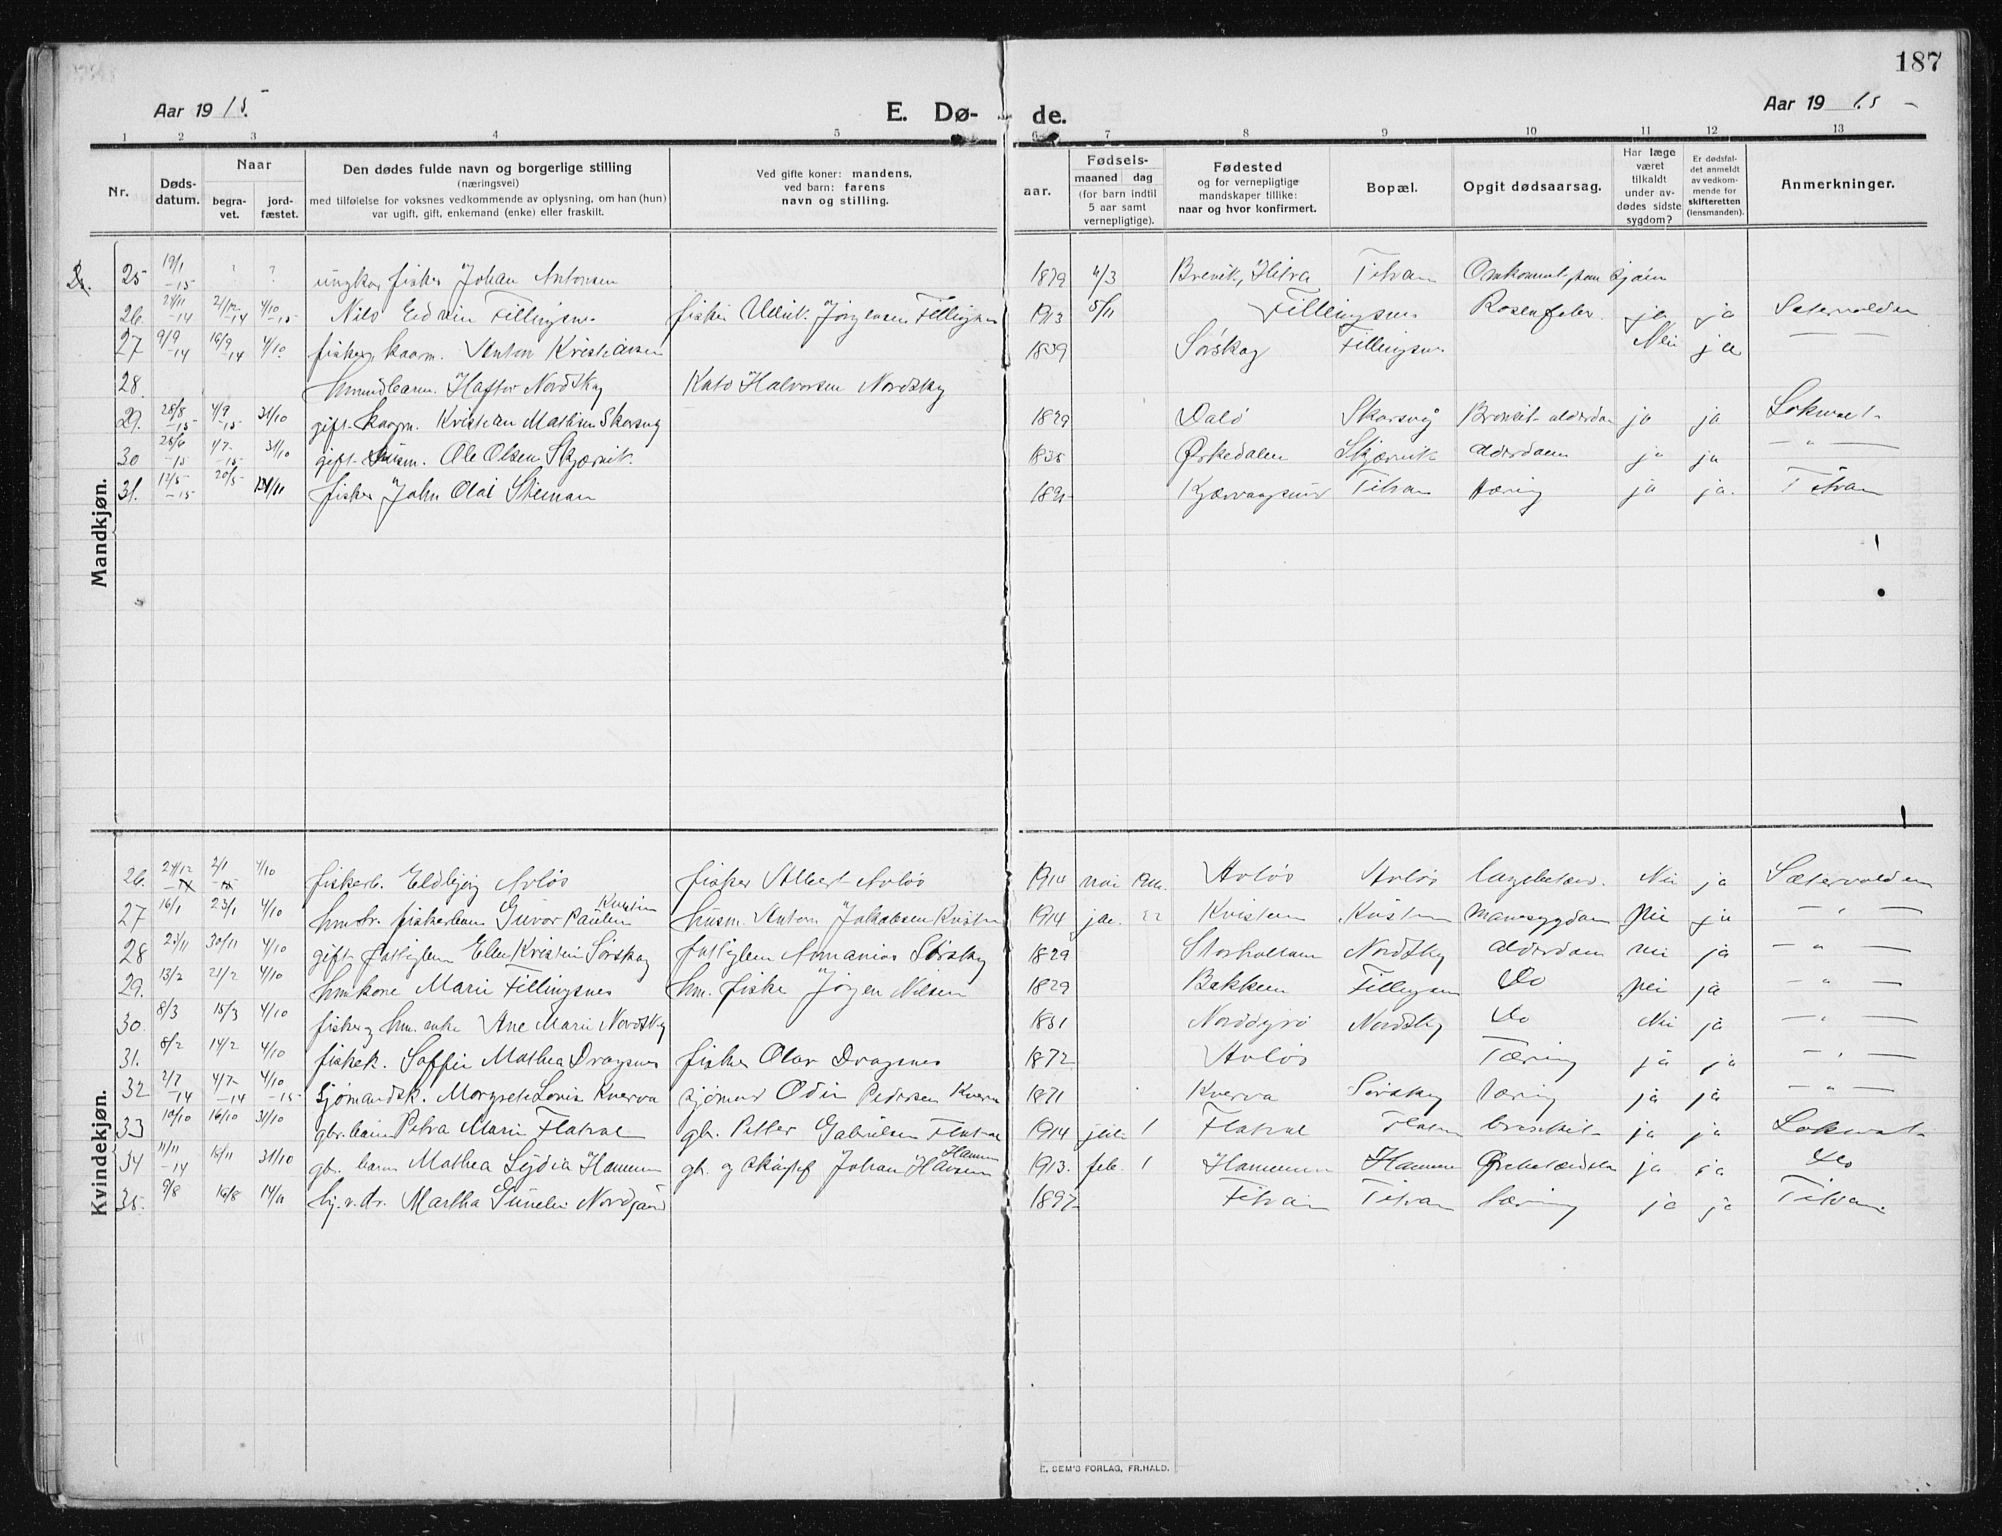 187
Aar 1915.
E. Døde.
Aar 1915
1 2 3 4 5 6 7 8 9 10 11 12 13
Nr.
Døds-
datum.
Naar
begra-
vet.
jord-
fæstet.
Den dødes fulde navn og borgerlige stilling
(næringsvei)
med tilføielse for voksnes vedkommende av oplysning, om han (hun)
var ugift, gift, enkemand (enke) eller fraskilt.
Ved gifte koner: mandens,
ved barn: farens
navn og stilling.
aar.
Fødsels-
maaned dag
(for barn indtil
5 aar samt
vernepligtige).
Fødested
og for vernepligtige
mandskaper tillike:
naar og hvor konfirmert.
Bopæl.
Opgit dødsaarsag.
Har læge
været
tilkaldt
under av-
dødes sidste
sygdom?
Er dødsfal-
det anmeldt
av vedkom-
mende for
skifteretten
(lensmanden).
Anmerkninger.
Mandkjøn.
25 19/1 -15 ? ? ungkar fisker Johan Antonsen 1879 4/3 Brevik, Hitra Titran Omkommet paa sjøen
26. 24/11 -14 2/12 -14 4/10 -15 Nils Edvin Fillingsnes fisker Ulrik Jørgensen Fillingsnes 1913 5/11 Fillingsnes Rosenfeber ja ja Sætervolden
27 9/9 -14 16/9 -14 4/10 fisker, kaarm. Anton Kristiansen 1839 Sørskag Fillingsn. Nei ja —
28. Haftor Nordskag Kato Halvorsen Nordskag
29. 28/8 -15 4/9 -15 31/10 gift kaarm. Kristian Mathisen Skarsvåg 1829 Dalø Skarsvåg Bronkit alderdom ja ja Sokval
30 28/6 -15 4/7 -15 31/10 gift husm. Ole Olsen Skjærvik 1835 Ørkedalen Skjærvik alderdom ja ja — " —
31. 12/5 -15 20/5 14/11 fisker John Olai Steman Titran tæring ja ja. Titran
Kvindekjøn.
26. 24/12 2/1 4/10 fiskerb. Eldbjørg Avløs fisker Albert Avløs 1914 Avløs Avløs Nei ja Sætervolden
27 16/1 23/1 4/10 Guvor Pauline Kvisten husm. Anton Johansen Kvisten 1914 jan. 22 Kvisten Kvisten nei ja — " —
28 23/11 30/11 4/10 gift fattiglem Ellen Kristin Sørskag fattiglem Annanias Sørskag 1829 Storhallaren Nordskag alderdom nei ja — " —
29. 13/2 21/2 4/10 hmkone Marie Fillingsnes hm. fisker Jørgen Nilsen 1829 Bakken Fillingsn Do nei ja — " —
30. 8/3 15/3 4/10 fisker og hm. enke Ane Marie Nordskag 1831 Norddyrø Nordskag Do Nei ja — " —
31. 8/2 14/2 4/10 fiskek. Soffie Mathea Dragsnes fisker Olav Dragsnes 1872 Avløs Tæring ja ja — " —
32 2/7 -14 4/7 -14 4/10 -15 Sjømandsk. Margrete Lovise Kverva sjømand Odin Pedersen Kverva 1871 Kverva Sørskag tæring ja ja — " —
33 10/10 16/10 31/10 gbr. barn Petra Marie Flatval gbr. Petter Gabrielsen Flatval 1914 juli 1 Flatval Flatval bronkit ja ja Sokval
34 11/11 -14 16/11 31/10 gbr. barn Mathea Lydia Hammeren gbr. og Johan Hansen Hammeren 1913. feb. 1 Hammeren Hammeren ja ja Do
35. 9/8 16/8 14/11 Martha Guneli Nordgård 1897 Titran Titran tæring ja ja Titran.
E. SEM'S FORLAG, FR.HALD.